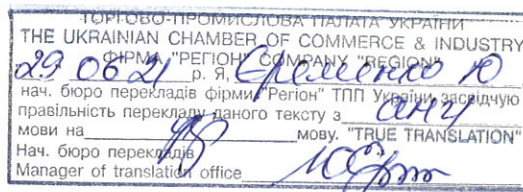 ТОРГОВО-ПРОМИСЛОВА ПАЛАТА УКРАЇНИ
THE UKRAINIAN CHAMBER OF COMMERCE & INDUSTRY
ФІРМА "РЕГІОН" COMPANY "REGION"
29 06 21 р. Я, Єременко Ю
нач. бюро перекладів фірми "Регіон" ТПП України, засвідчую
правільність перекладу даного тексту з
мови на мову. "TRUE TRANSLATION"
Нач. бюро перекладів
Manager of translation office